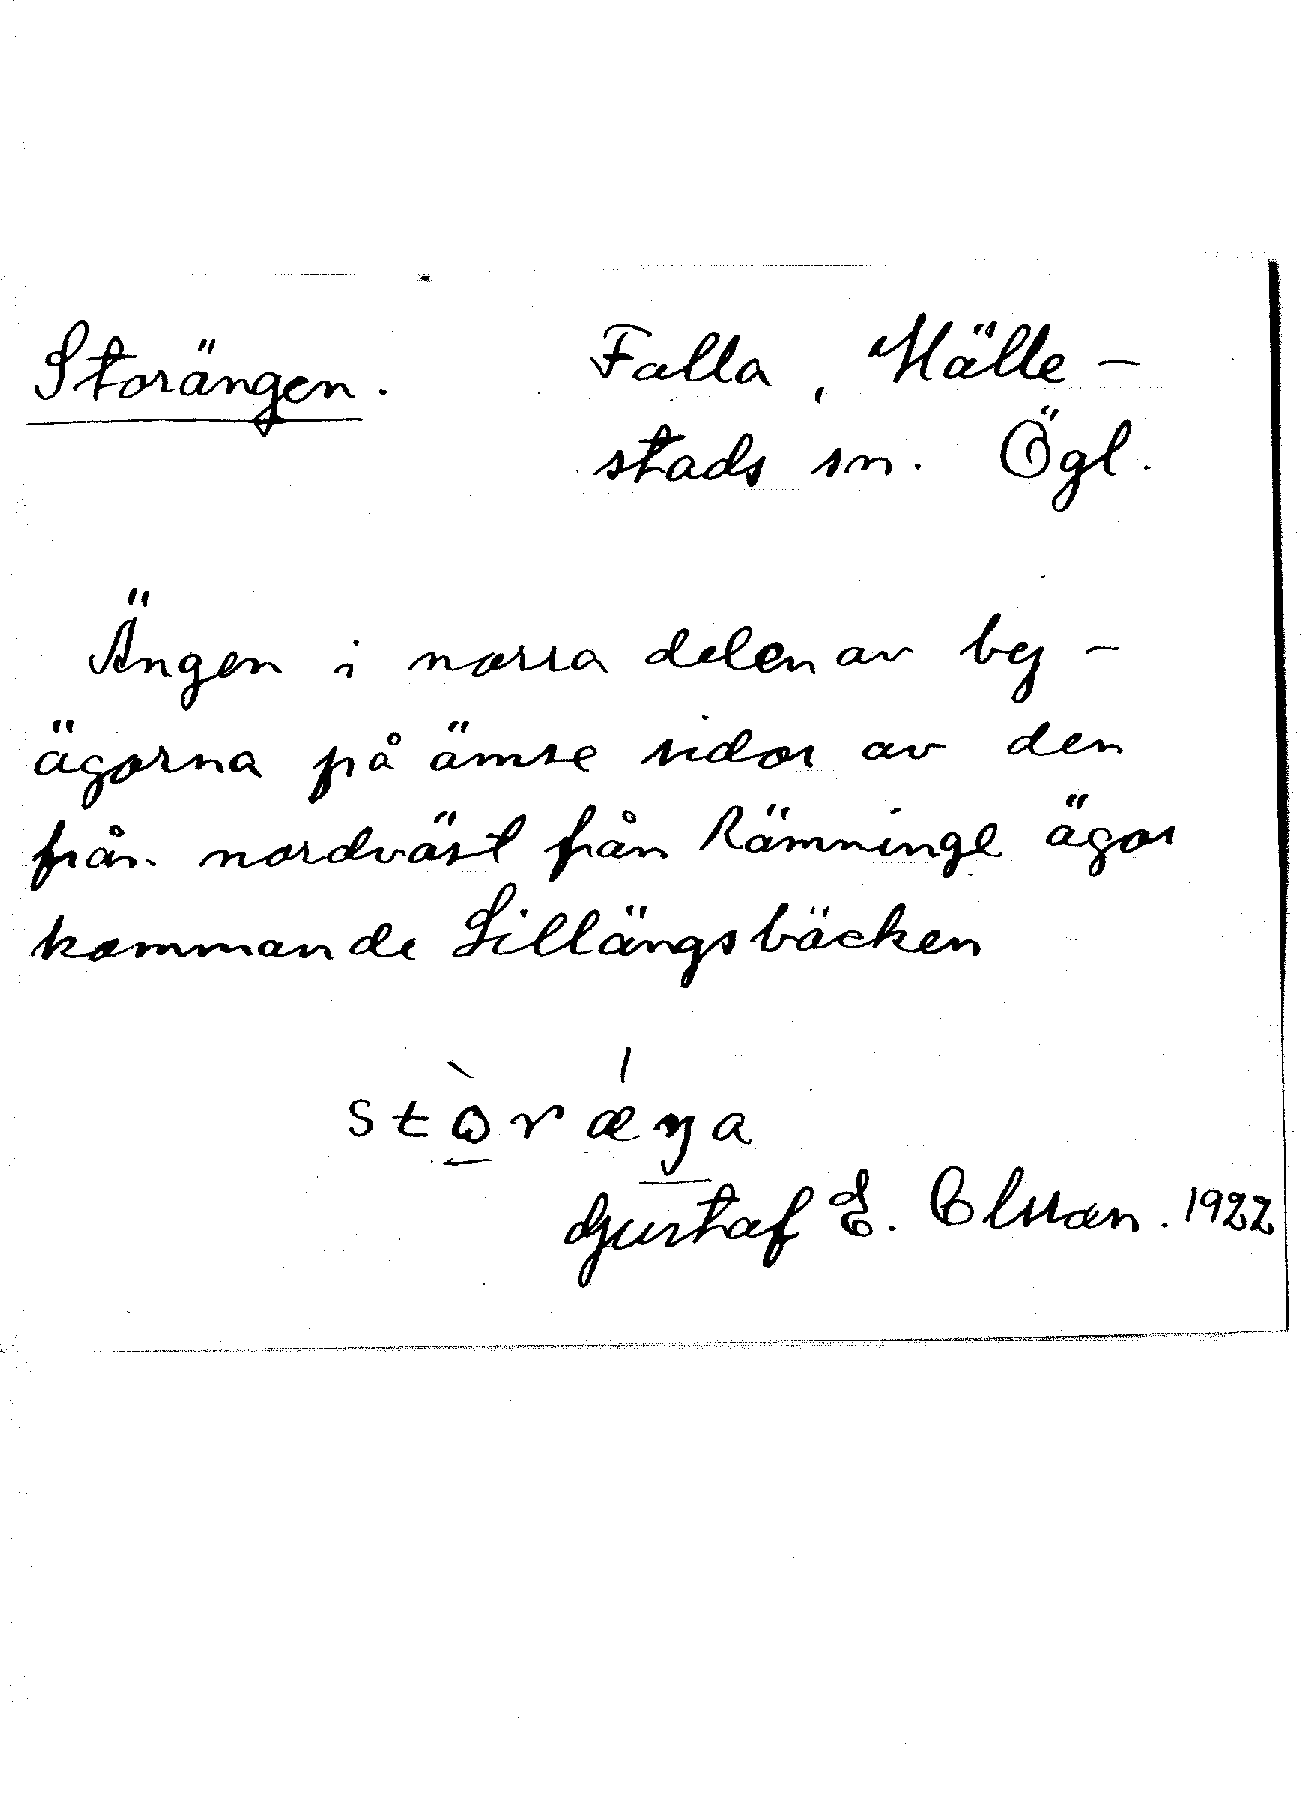 Storängen.
Falla, Hälle-
stads sn. Ögl.
Ängen i norra delen av by-
ägorna på ömse sidor av den
från nordväst från Rämninge ägor
kommande Lillängsbäcken
stòrǽŋa
Gustaf E. Olsson. 1922